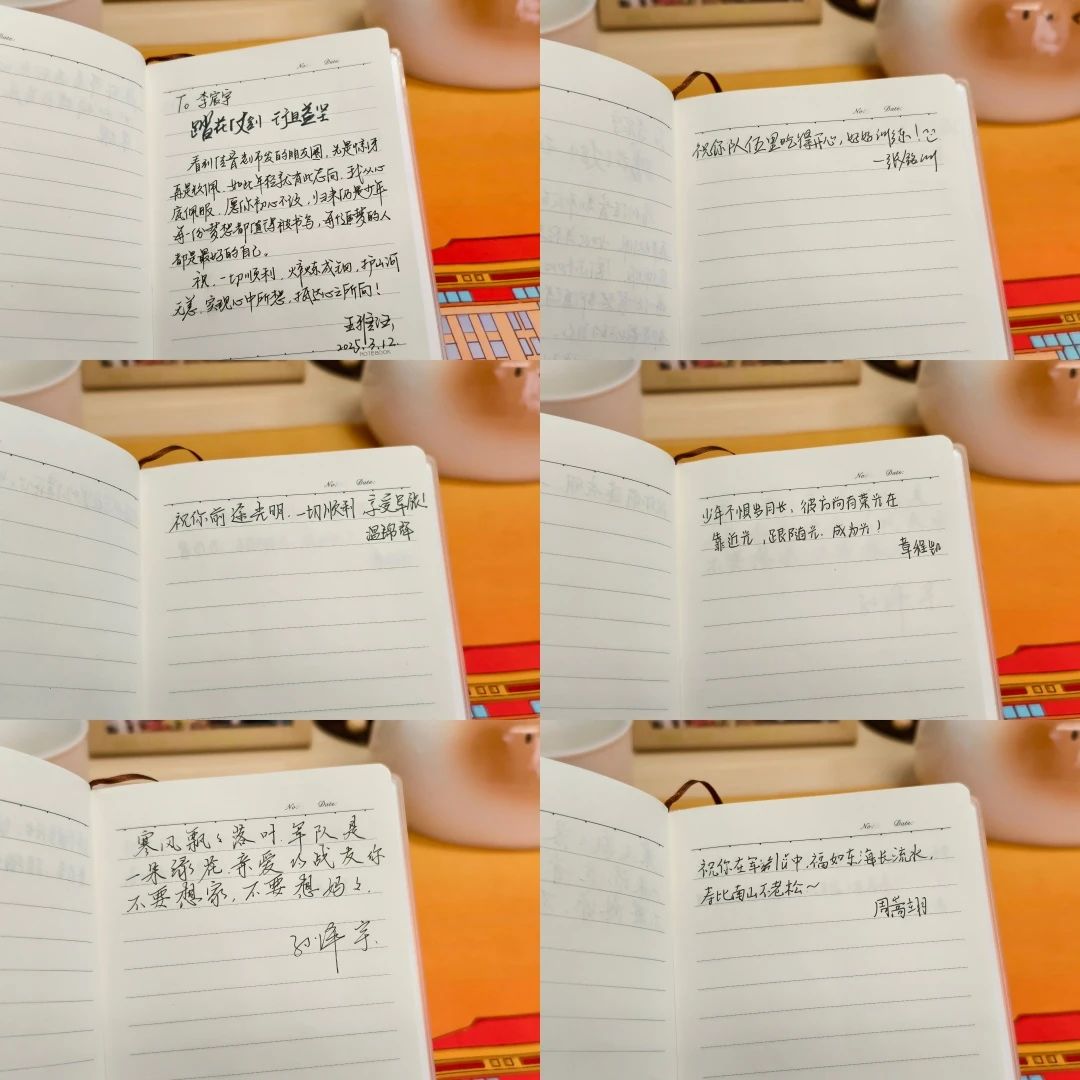 No:    Date:
To 李宸宇
踏花仗剑 行且益坚
看到佳音老师发的朋友圈，先是惊讶
再是钦佩，如此年轻就有此志向，我从心
底佩服，愿你初心不改，归来仍是少年
每一份梦想都值得被书写，每代逐梦的人
都是最好的自己。
祝，一切顺利，淬炼成钢，护山河
无恙，实现心中所想，抵达心之所向！
2025.3.12.
NOTEBOOK
No:    Date:
祝你队伍里吃得开心，好好训练！
No:    Date:
祝你前途光明，一切顺利 享受军旅！
温锦辉
No:    Date:
少年不惧岁月长，彼方尚有荣光在
靠近光，跟随光，成为光！
章程凯
No:    Date:
寒风飘飘落叶，军队是
一朵绿花，亲爱的战友你
不要想家，不要想妈妈
孙泽宇
No:    Date:
祝你在军旅中，福如东海长流水，
寿比南山不老松～
周嵩翊